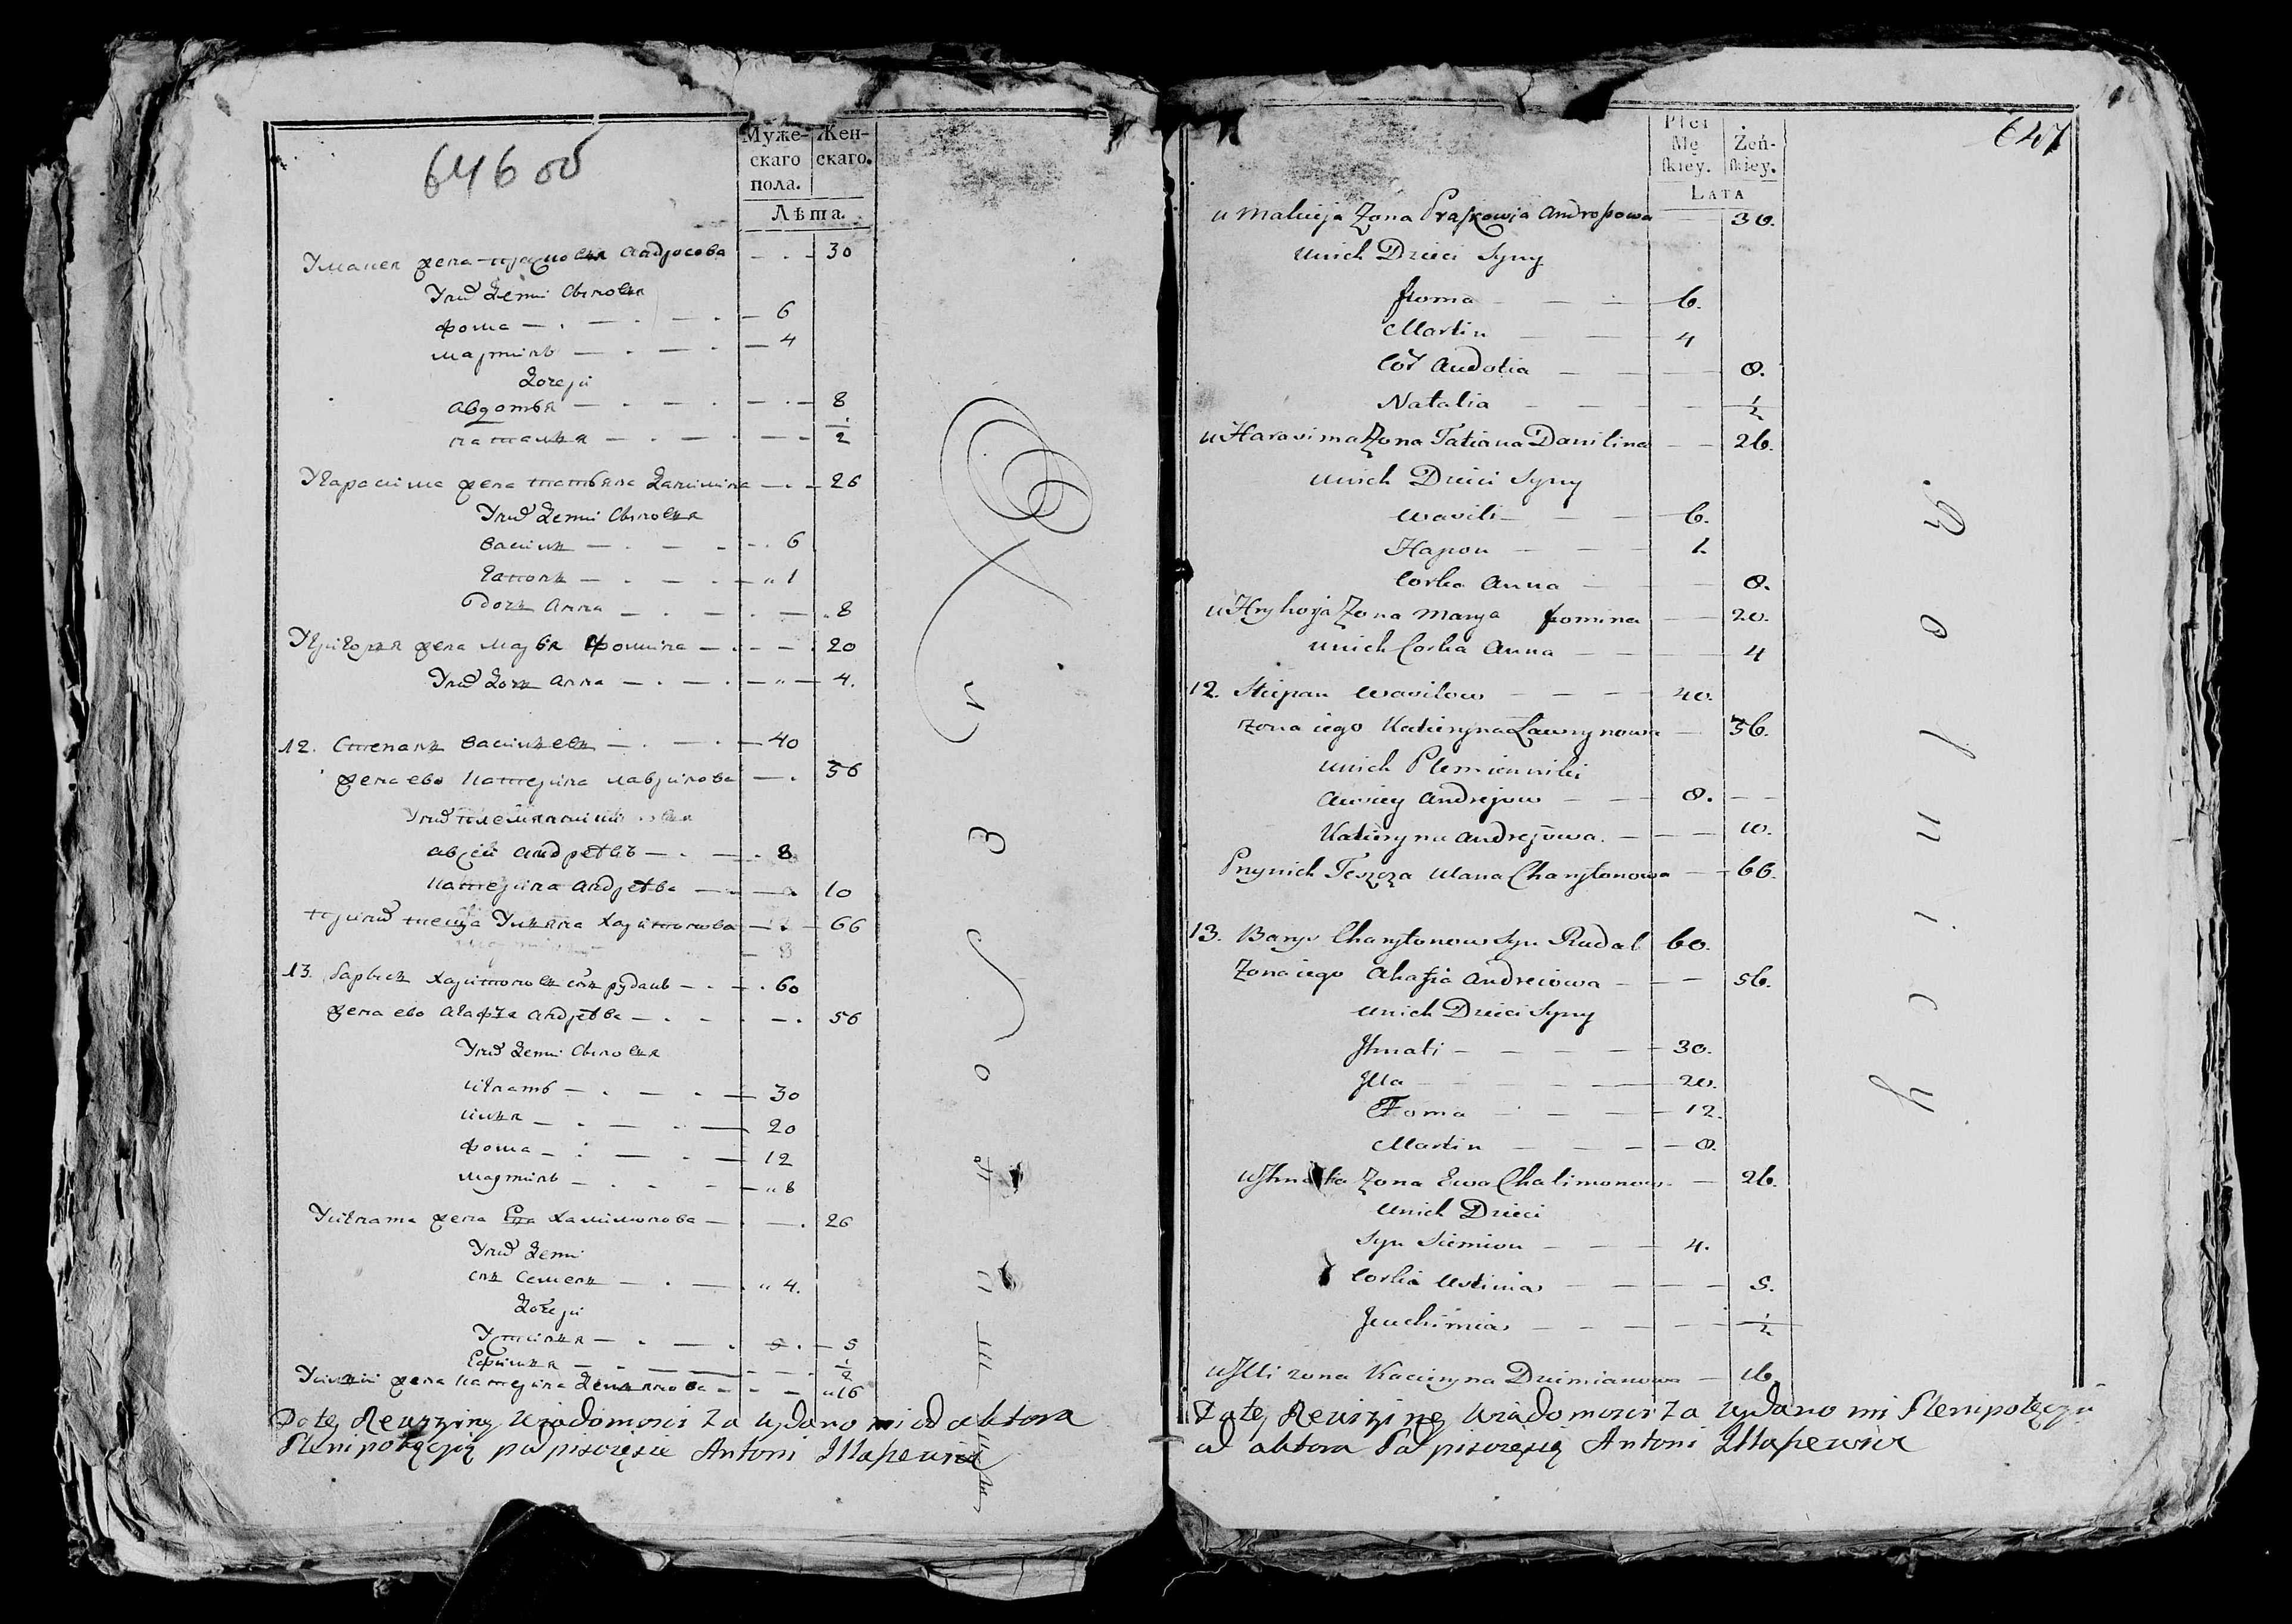 646 об
Муже- Жен-
скаго скаго.
пола.
Лѣта.
жена Андросова 30
Унихъ дети Сыновья
Фома 6
Мартинъ 4
дочери
Авдотья 8
Наталья 1/2
Угарасима жена татьяна данилина 26
Унихъ дети Сыновья
василь 6
гапонъ 1
дочь Анна 8
Угригоря жена марья Фомина 20
Унихъ дочь Анна 4.
12. Степанъ васильевъ 40
жена ево катерина лавринова 36
Унихъ
авсей андреевъ 8
катерина андреева 10
принихъ теща Ульяна Харитонова 66
13. барысъ харитоновъ снъ рудакъ 60
жена ево агафья андреева 56
Унихъ дети Сыновья
игнатъ 30
илья 20
фома 12
мартинъ 8
Уигната жена Ева халимонова 26
Унихъ дети
снъ семенъ 4.
дочери
Устинья 5
Ефимья 1/2
Уильи жена катерина демьянова 16
Do tey Rewizyiney Wiadomosci za wydano mi od aktora
Plenipotęcyją podpisuięsie Antoni
Płci
Mę Żeń-
ſkiey. ſkiey.
LATA
647
u Matwieja Zona Praskowia Androsowa 30.
unich Dzieci Syny
foma 6.
Martin 4
Cor Audotia 8.
Natalia 1/2
u Harasima Zona Tatiana Danilina 26.
unich Dzieci Syny
Wasili 6.
Hapon 1.
Corka Anna 8.
u Hryhorja Zona Marya fomina 20.
unich Corka Anna 4
12. Stiepan Wasilow 40.
Zona iego Katieryna Lawrynowa 36.
unich Plemienniki
Awsiey Andrejow 8.
Katieryna Andrejowa. 10.
Przynich Teszcza Ulana Charytonowa 66.
13. Barys Charytonow Syn Rudak 60.
Zona iego Ahafia Andreiowa 56.
unich Dzieci Syny
Jhnati 30.
Jlla 20.
Foma 12.
Martin 8.
u Jhnata Zona Ewa Chalimonowa 26.
unich Dzieci
Syn Siemion 4.
Corka Ustinia 5.
Jeuchimia 1/2
u Jlli zona Kacieryna Dziemianowa 16.
Do tey Rewizyiney Wiadomosci za wydano mi Plenipotęcyą
od aktora Podpisuięsię Antoni